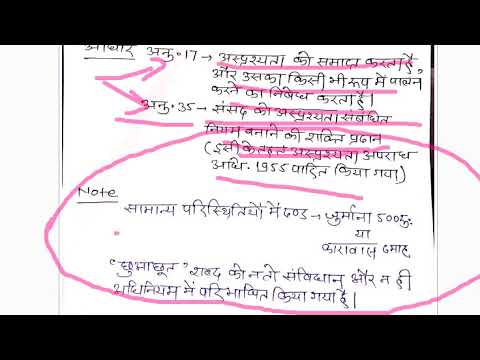 आधार अनु॰17 → अस्पृश्यता को समाप्त करता है,
और उसका किसी भी रूप में पालन
करने का निषेध करता है।
अनु॰35 → संसद को अस्पृश्यता संबंधित
नियम बनाने की शक्ति प्रदान
(इसी के तहत अस्पृश्यता अपराध
अधि॰ 1955 पारित किया गया)
Note
सामान्य परिस्थितियों में दण्ड → जुर्माना 500रू.
या
कारावास 6माह
"छुआछूत" शब्द को न तो संविधान और न ही
अधिनियम में परिभाषित किया गया है।